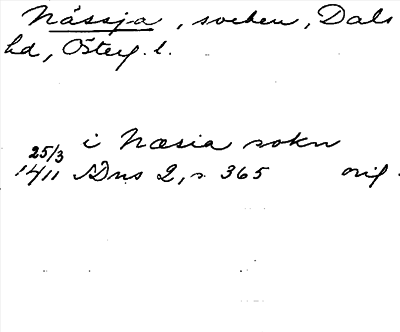 Nässja, socken, Dals
hd, Österg. l.
i Næsia sokn
25/3
1411 SDns 2, s. 365 orig.